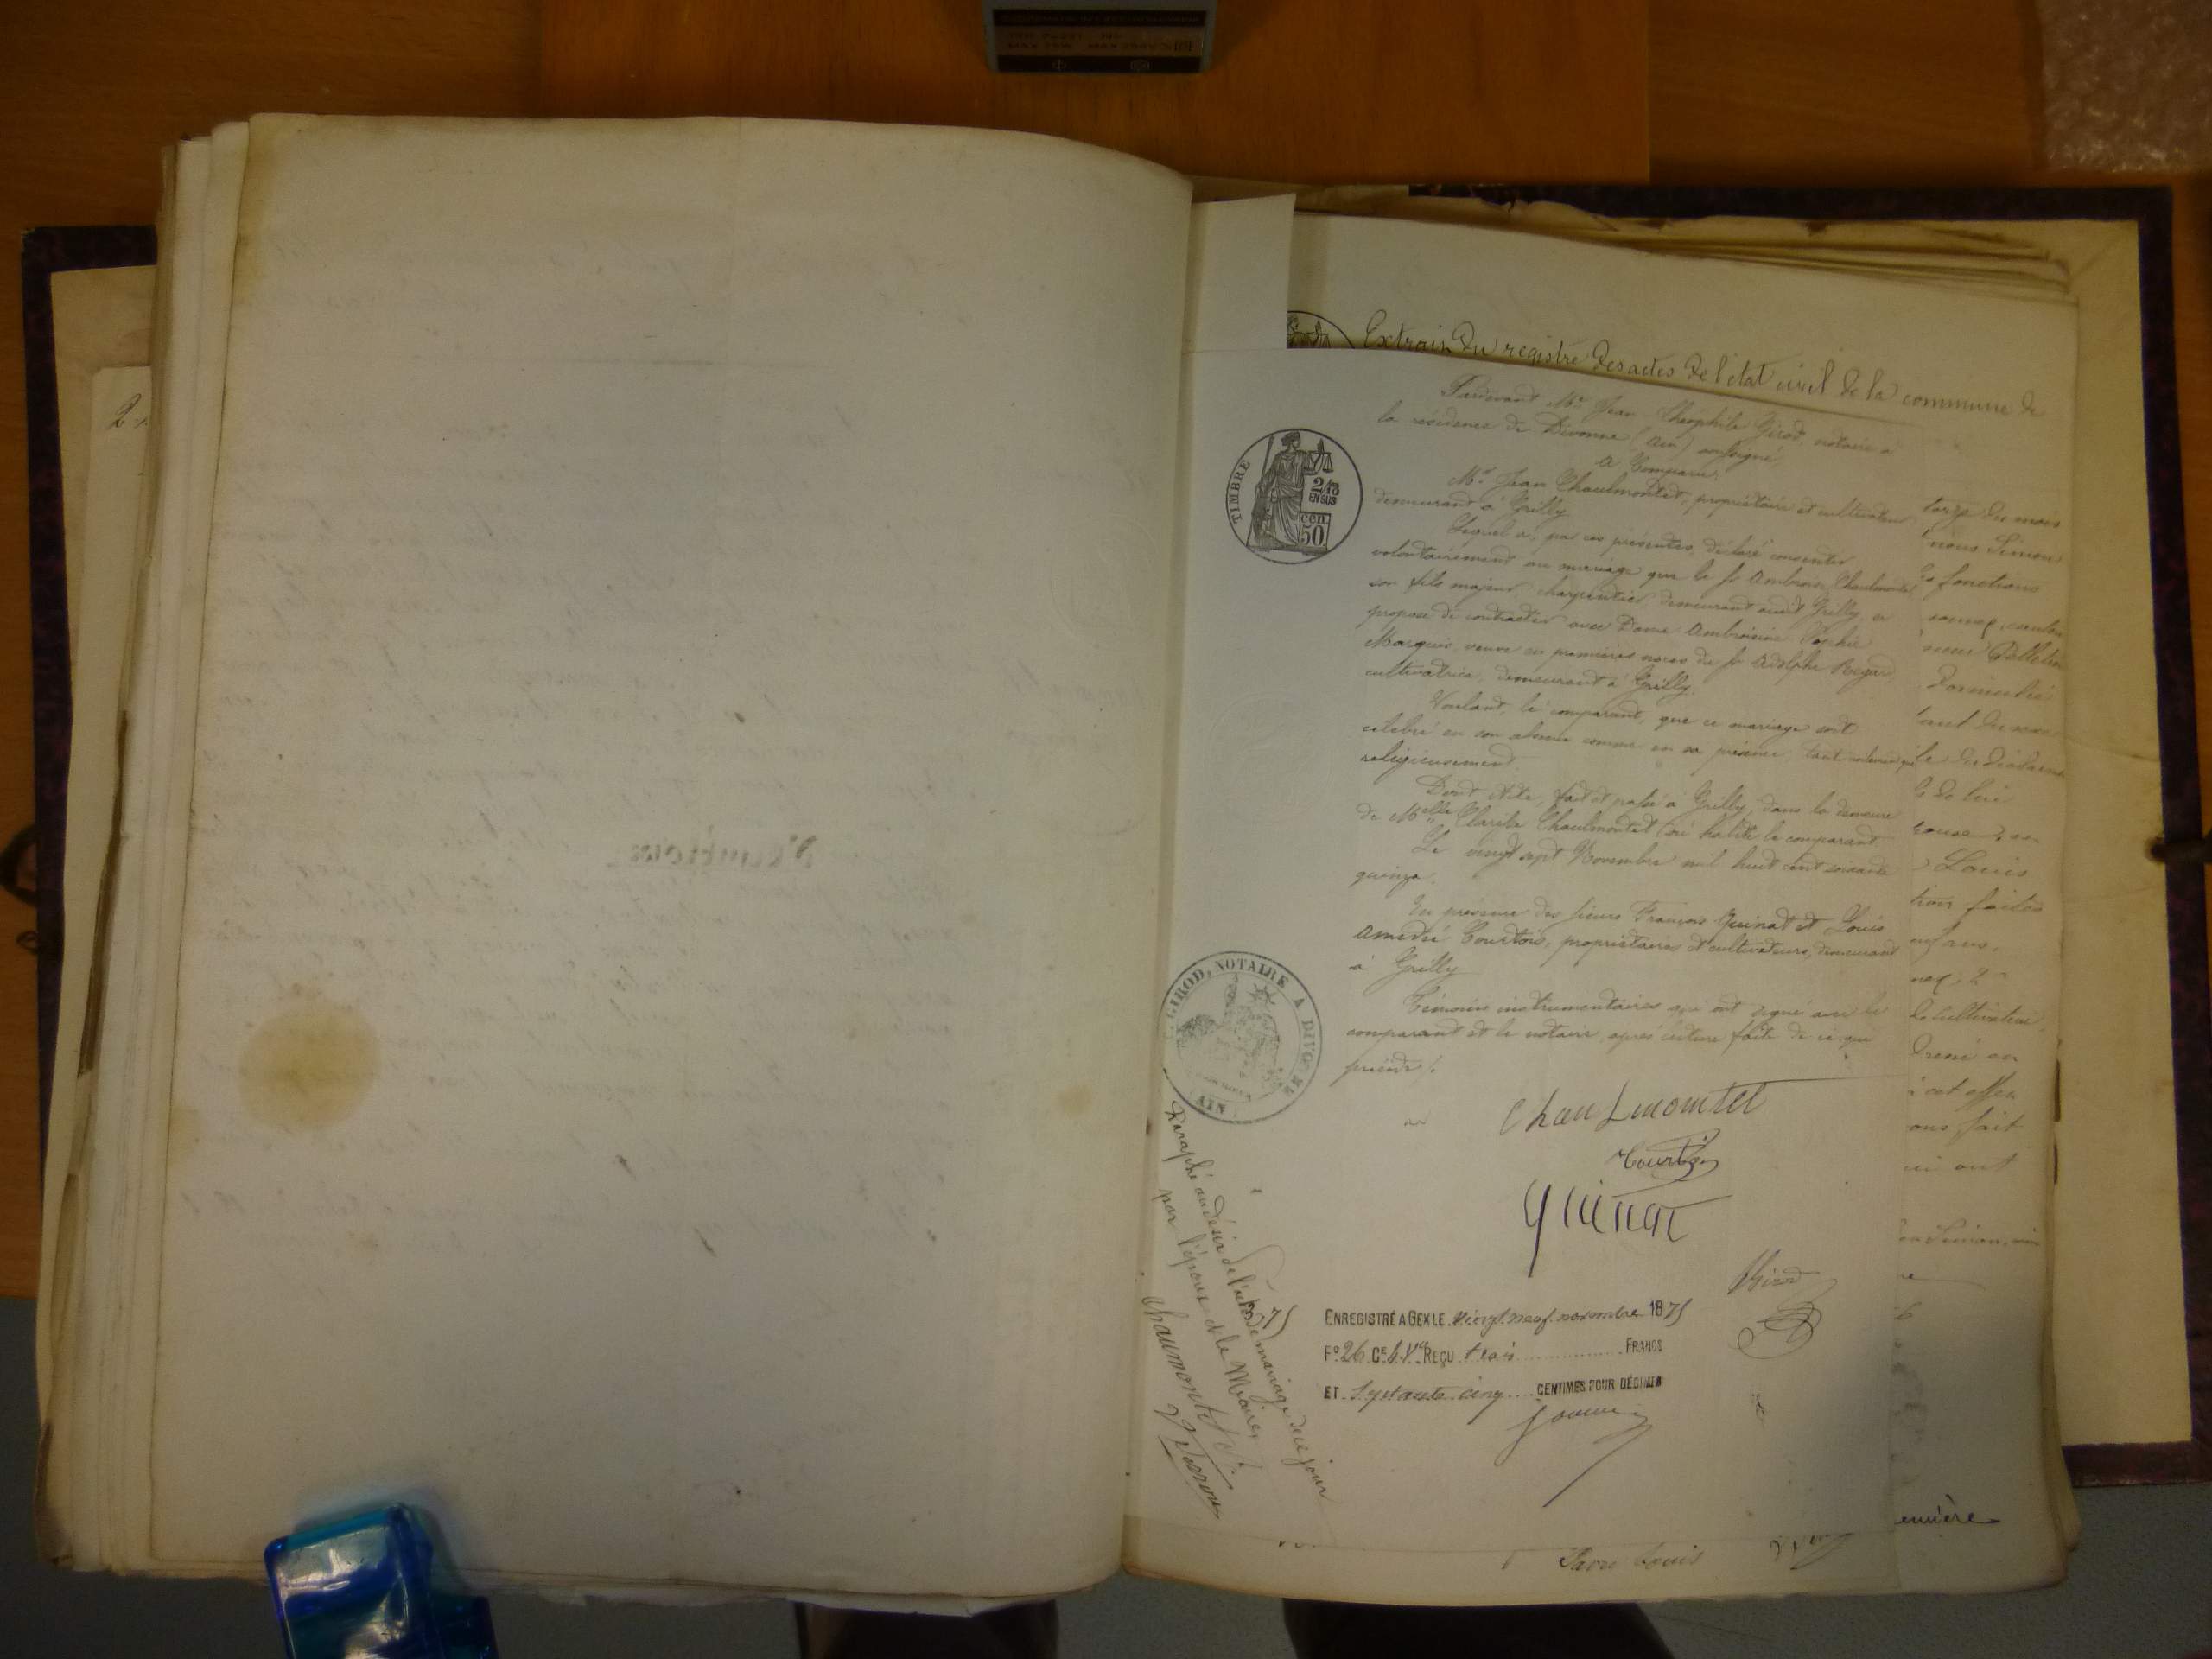 Extrait du registre des actes de l'état civil de la commune de
Pardevant Me Jean Théophile Girod, notaire à
la résidence de Divonne (Ain) soussigné
A Comparu
Mr Jean Chaulmontet, propriétaire et cultivateur
demeurant à Grilly
Lequel a, par ces présentes, déclaré consentir
volontairement au mariage que le Sr Ambroise Chaulmontet
son fils majeur charpentier demeurant audit Grilly, se
propose de contracter avec Dame Ambroisine Sophie
Marquis, veuve en premières noces du Sr Adolphe
cultivatrice, demeurant à Grilly.
Voulant, le comparant, que ce mariage soit
célébré en son absence comme en sa présence, tant civilement que
religieusement.
Dont acte, fait et passé à Grilly, dans la demeure
de Melle Clarisse Chaulmontet où habite le comparant
Le vingt sept Novembre mil huit cent soixante
quinze.
En présence des sieurs François Quinat et Louis
Amédée Courtois, propriétaires et cultivateurs, demeurant
à Grilly
Témoins instrumentaires qui ont signé avec le
comparant et le notaire, après lecture faite de ce que
précède /.
TIMBRE
2/10
EN SUS
cen.
50
GIROD, NOTAIRE A DIVONNE
(AIN)
Chaulmontet
Courtois
Quinat
Girod
ENREGISTRÉ A GEX LE vingt neuf novembre 1875
Fo 26 Ce REÇU trois FRANCS
ET Septante cinq CENTIMES POUR DÉCIMES
Paraphé au désir de l'acte de mariage de ce jour
par l'époux et le Maire
Chaumontet
torze du mois
nous Simon
fonctions
canton
Pelletier
Domicilié
de lui
Louis
tion faites
ans,
le cultivateur
à cet effet
ons fait
ui ont
Simon,
Favre Louis